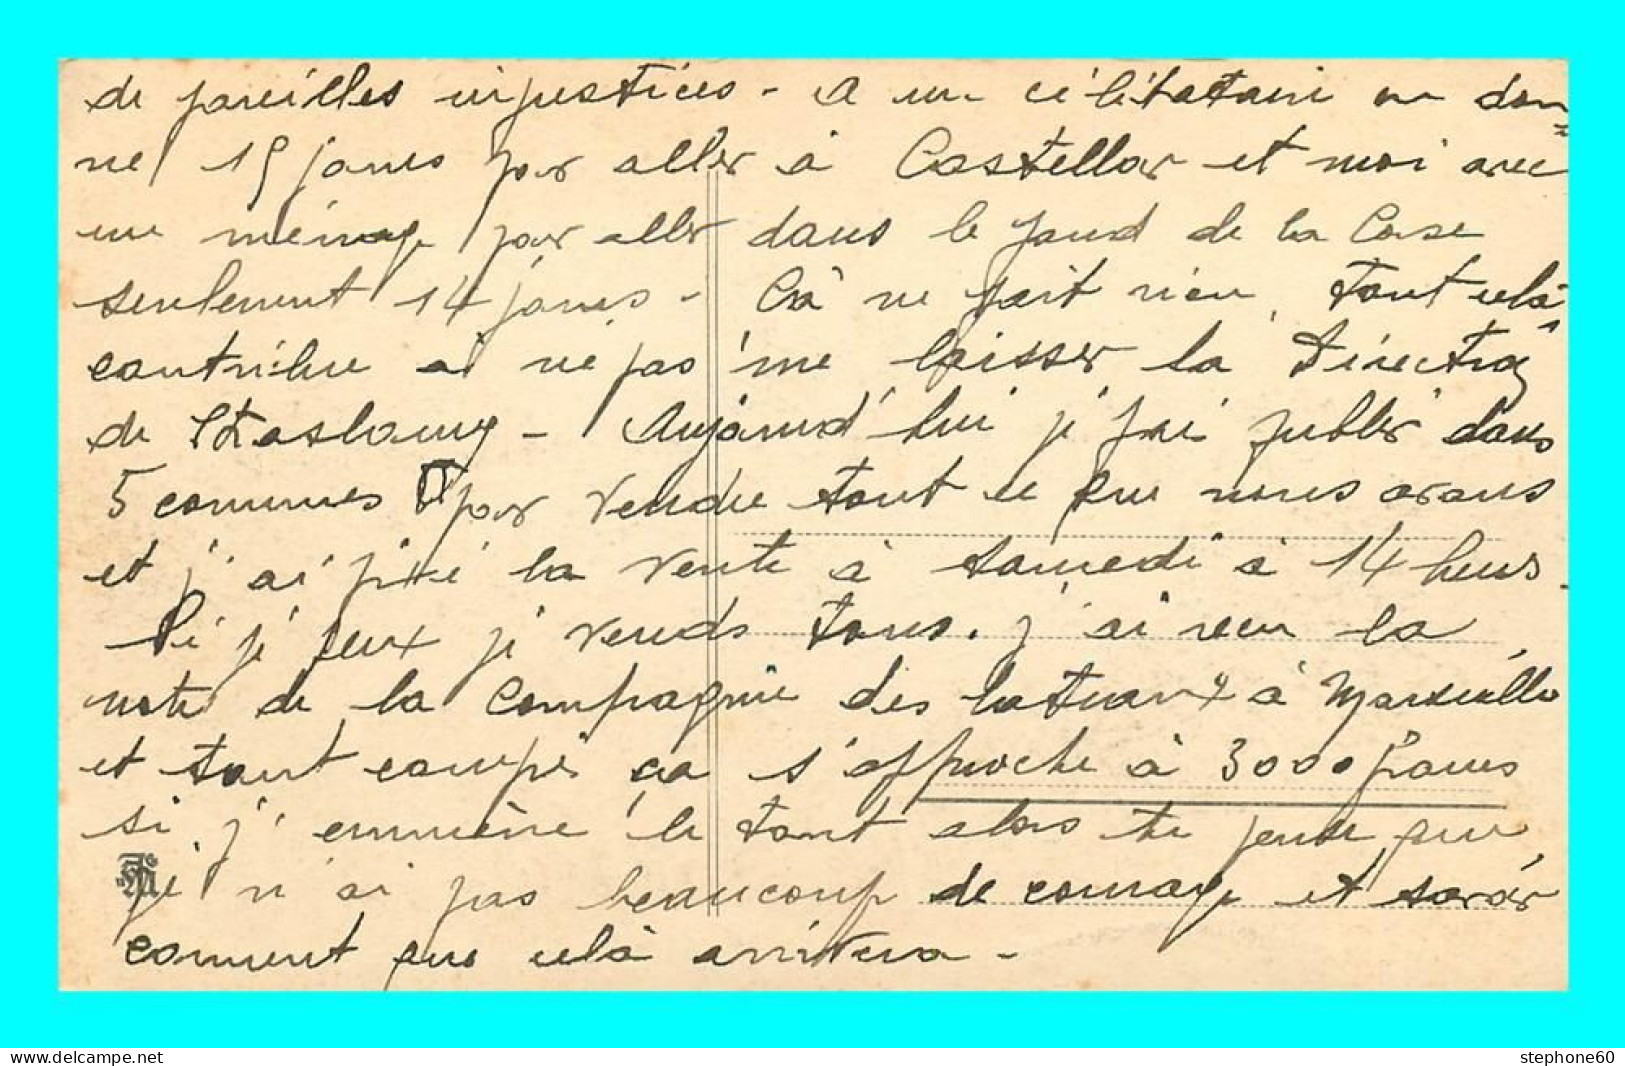 de pareilles injustices - A un célibataire on don-
ne 15 jours pour aller à Castellar et moi avec
un ménage pour aller dans le fond de la Corse
seulement 14 jours - Cà ne fait rien, tout celà
contribue à ne pas me laisser la Direction
de Strasbourg - Aujourd'hui j'fai publier dans
5 communes pour vendre tout ce que nous avons
et j'ai fixé la vente à samedi à 14 heures.
Si je peux je vends tous. J'ai reçu la
note de la Compagnie des bateaux à Marseille
et tout compris ça s'approche à 3000 francs
si j'emmène le tout alors tu pense que
je n'ai pas beaucoup de courage et savoir
comment que celà arrivera -
www.delcampe.net
stephone60